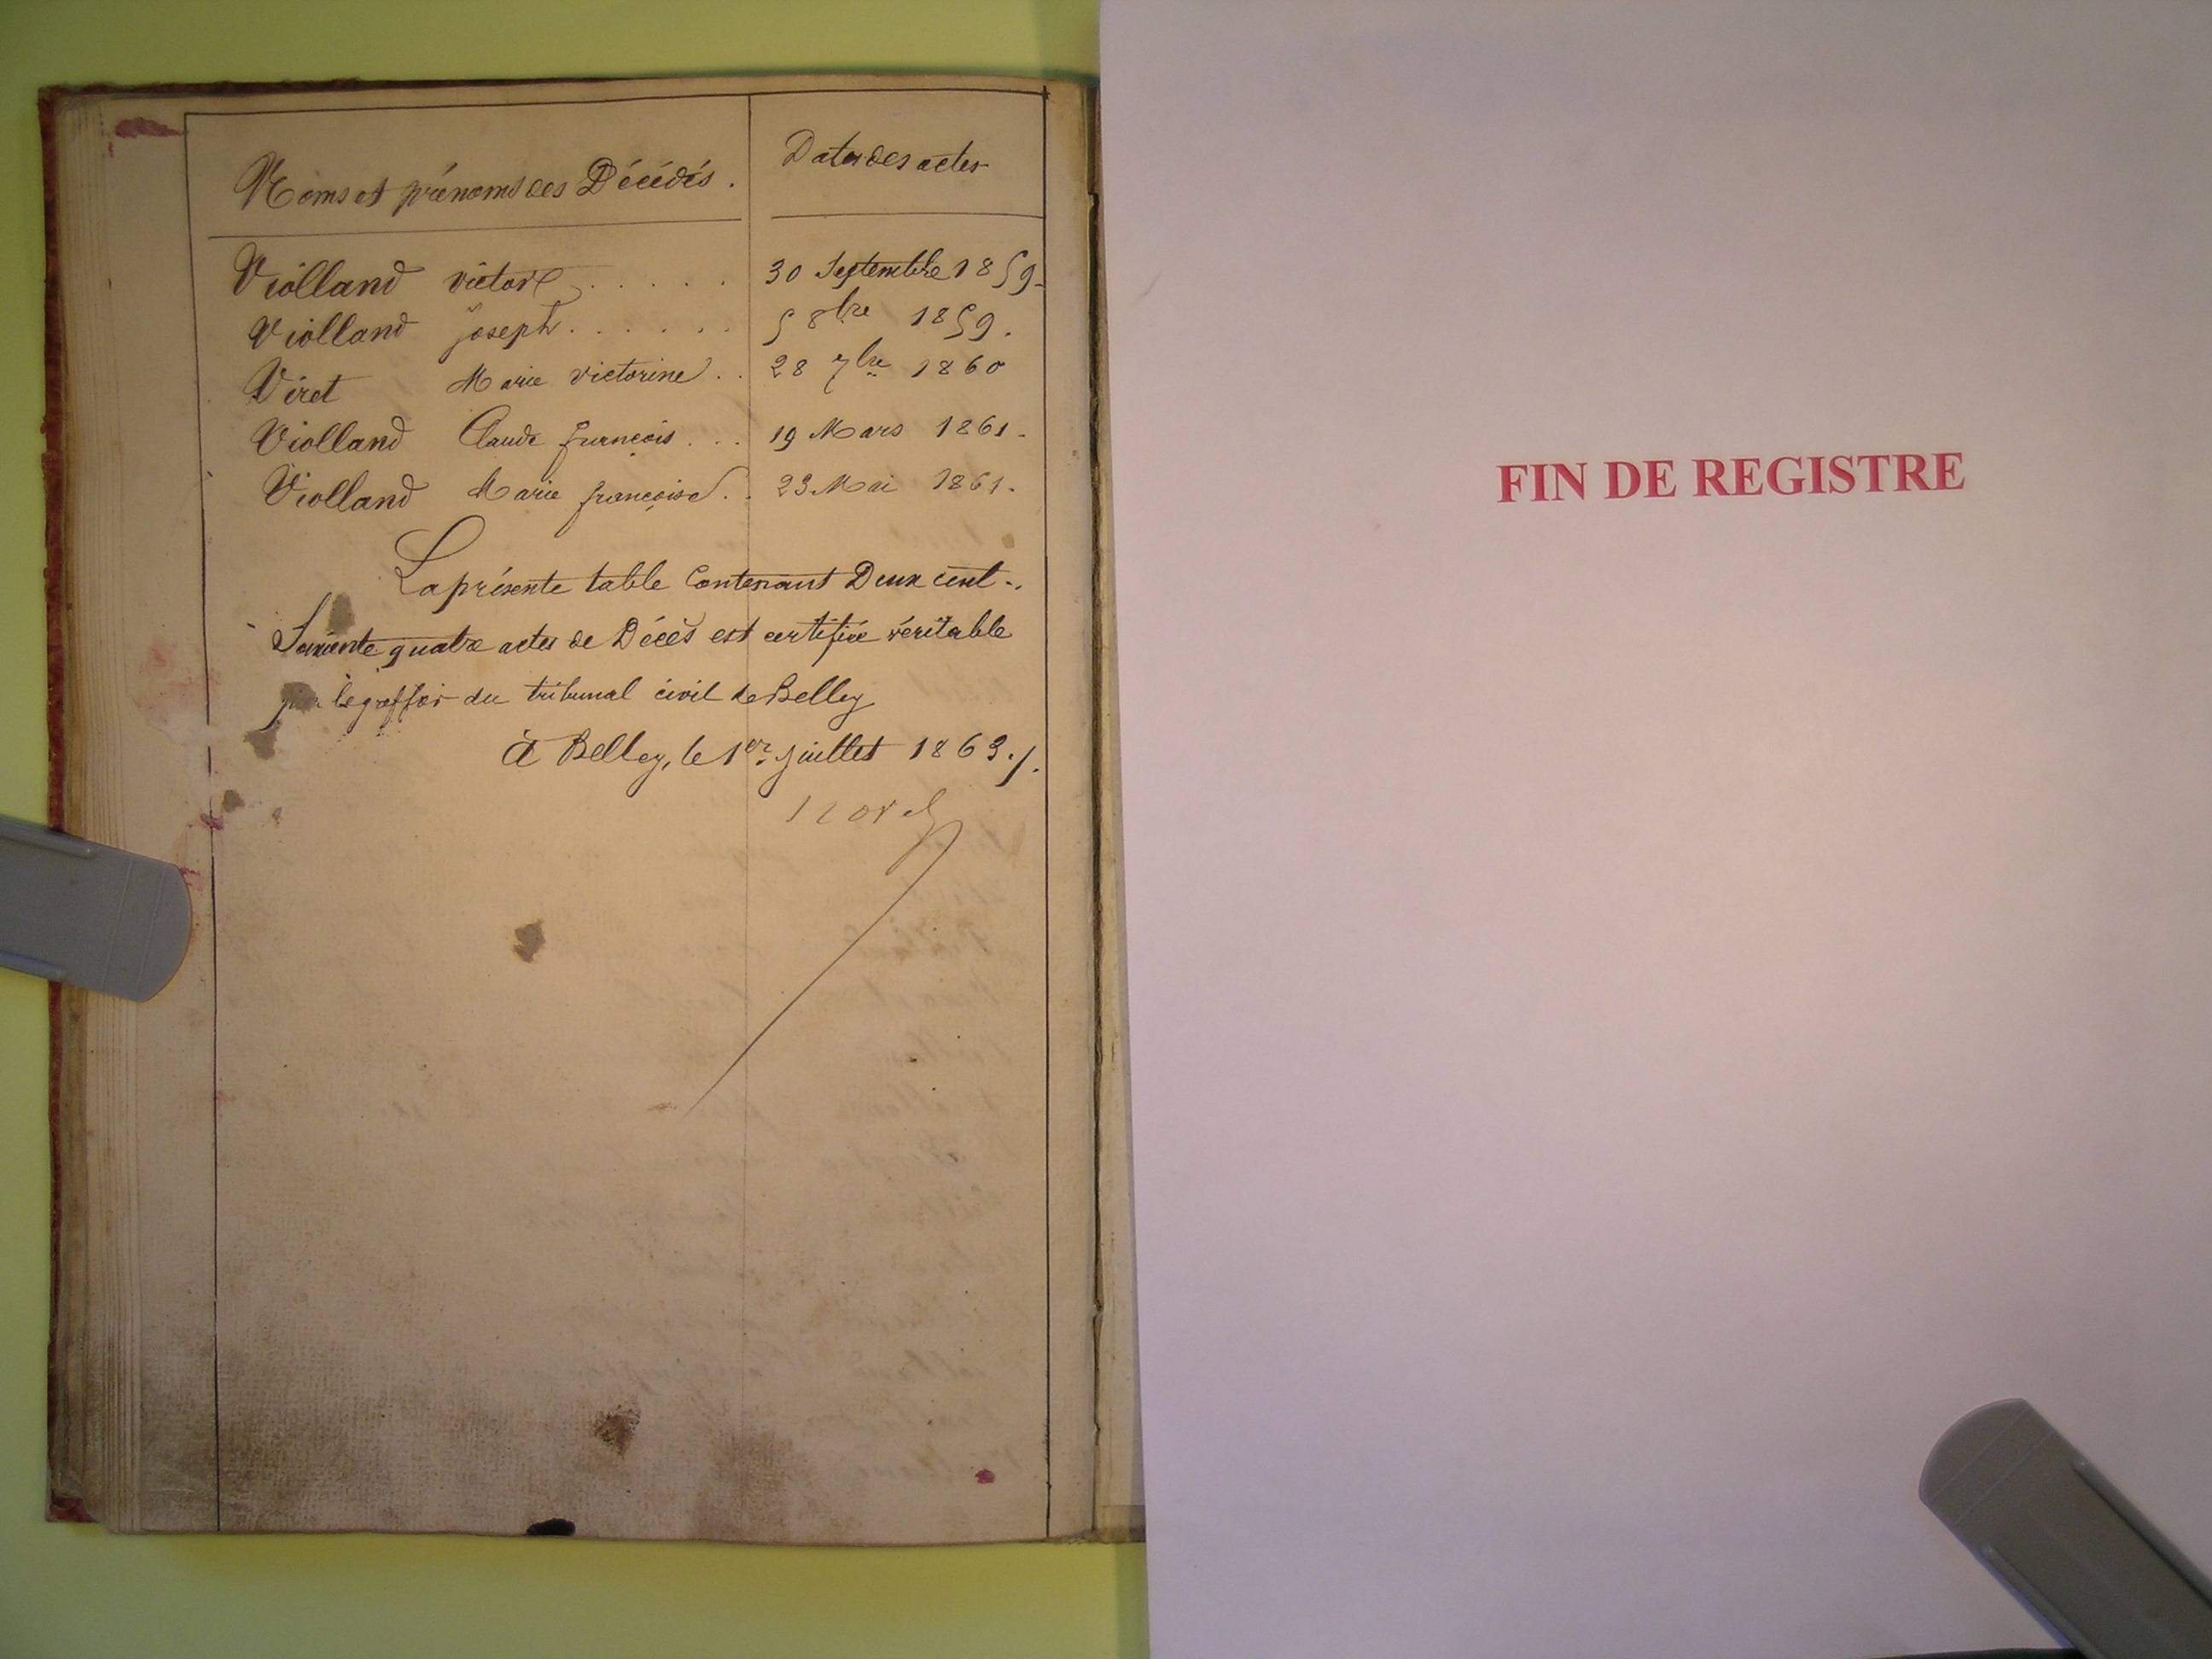 Noms et prénoms des Décédés. Dates des actes
Violland victor . . . . . 30 Septembre 1859
Violland joseph . . . . . . 5 8bre 1859.
Viret Marie victorine . . 28 7bre 1860
Violland Claude françois . . . 19 Mars 1861.
Violland Marie françoise . . 23 Mai 1861.
La présente table Contenant Deux cent
Soixante quatre actes de Décès est certifiée véritable
par le greffier du tribunal civil de Belley
à Belley, le 1er juillet 1863./.
FIN DE REGISTRE